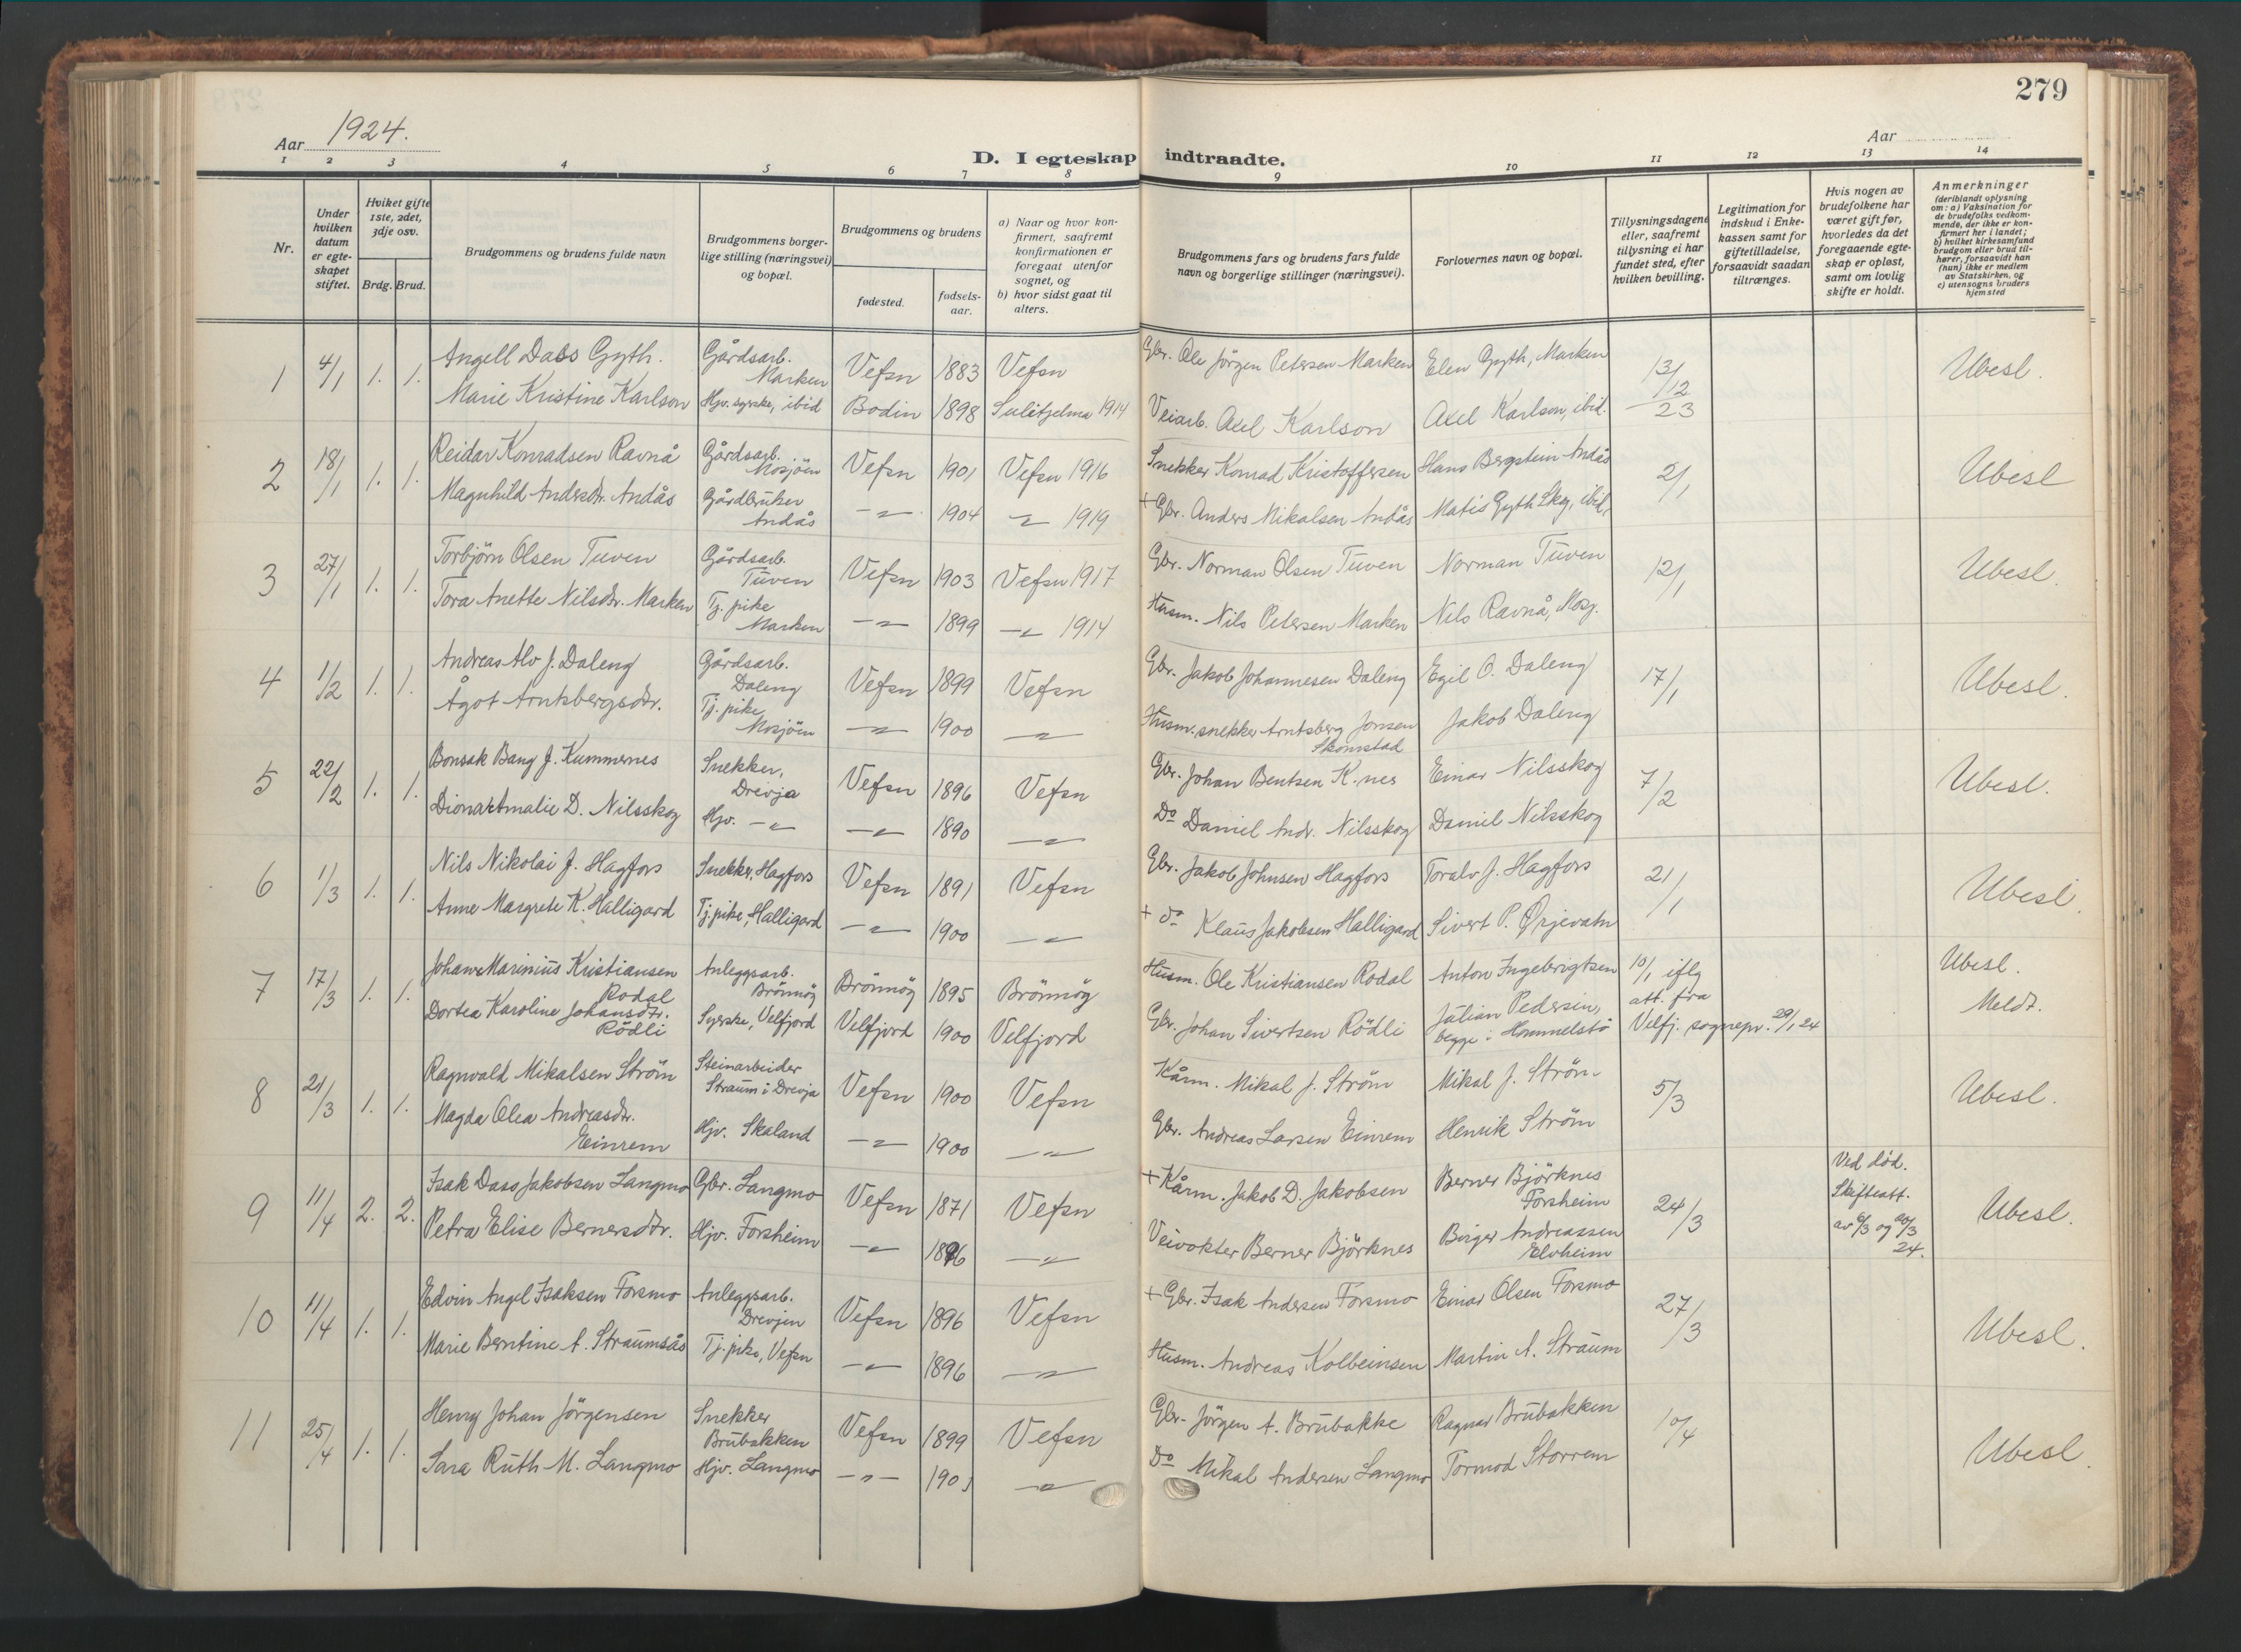 279
Aar 1924.
Aar
D. I egteskap indtraadte.
1 2 3 4 5 6 7 8 9 10 11 12 13 14
Nr.
Under hvilken datum er egteskapet stiftet.
Hviket gifte 1ste, 2det, 3dje osv.
Brdg. Brud.
Brudgommens og brudens fulde navn
Brudgommens borgerlige stilling (næringsvei) og bopæl.
Brudgommens og brudens
fødested.
fødselsaar.
a) Naar og hvor konfirmert, saafremt konfirmationen er foregaat utenfor sognet, og
b) hvor sidst gaat til alters.
Brudgommens fars og brudens fars fulde navn og borgerlige stillinger (næringsvei).
Forlovernes navn og bopæl.
Tillysningsdagene eller, saafremt tillysning ei har fundet sted, efter hvilken bevilling.
Legitimation for indskud i Enkekassen samt for giftetilladelse, forsaavidt saadan tiltrænges.
Hvis nogen av brudefolkene har været gift før, hvorledes da det foregaaende egteskap er opløst, samt om lovlig skifte er holdt.
Anmerkninger (deriblandt oplysning om: a) Vaksination for de brudefolks vedkommende, der ikke er konfirmert her i landet; b) hvilket kirkesamfund brudgom eller brud tilhører, forsaavidt han (hun) ikke er medlem av Statskirken, og c) utensogns bruders hjemsted
1 4/1 1. 1. Angell Dass Gyth. Gårdsarb. Marken Vefsn 1883 Vefsn Gbr. Ole Jörgen Petersen Marken Elen Gyth, Marken 13/12 23 Ubesl.
Marie Kristine Karlson Hjv. syrske, ibid Bodin 1898 Sulitjelma 1914 Veiarb. Axel Karlson Axel Karlson, ibid.
2 18/1 1. 1. Reidar Konradsen Ravnå Gårdsarb. Mosjöen Vefsn 1901 Vefsn 1916 Snekker Konrad Kristoffersen Hans Bergstein Andås 2/1 Ubesl
Magnhild Andersdr. Andås Gårdbruker Andås -"- 1904 -"- 1919 + Gbr. Anders Mikalsen Andås Matis Gyth Skog, ibid.
3 27/1 1. 1. Torbjörn Olsen Tuven Gårdsarb. Tuven Vefsn 1903 Vefsn 1917 Gbr. Norman Olsen Tuven Norman Tuven 12/1 Ubesl.
Tora Anette Nilsdr. Marken Tj. pike Marken -"- 1899 -"- 1914 Husm. Nils Petersen Marken Nils Ravnå, Mosj.
4 1/2 1. 1. Andreas Alv J. Daleng Gårdsarb. Daleng Vefsn 1899 Vefsn Gbr. Jakob Johannesen Daleng Egil O. Daleng 17/1 Ubesl.
Ågot Arntsbergsdr. Tj. pike Mosjöen -"- 1900 -"- Husm. snekker Arntsberg Jonsen Skomstad Jakob Daleng
5 22/2 1. 1. Bonsak Bang J. Kummernes Snekker, Drevja Vefsn 1896 Vefsn Gbr. Johan Bentsen K.nes Einar Nilsskog 7/2 Ubesl.
Dionar Amalie D. Nilsskog Hjv. -"- -"- 1890 -"- Do Daniel Andr. Nilsskog Daniel Nilsskog
6 1/3 1. 1. Nils Nikolai J. Hagfors Snekker, Hagfors Vefsn 1891 Vefsn Gbr. Jakob Johnsen Hagfors Toralv J. Hagfors 21/1 Ubesl.
Anne Margrete K. Halligard Tj. pike, Halligard -"- 1900 -"- + do Klaus Jakobsen Halligard Sivert P. Ørjevatn
7 17/3 1. 1. Johan Marinius Kristiansen Rodal Anleggsarb. Brönnöy Brönnöy 1895 Brönnöy Husm. Ole Kristiansen Rodal Anton Ingebrigtsen 10/1 iflg Ubesl.
Dortea Karoline Johansdtr. Rödli Syerske, Velfjord Velfjord 1900 Velfjord Gbr. Johan Sivertsen Rödli Julian Pedersen, begge i Hommelstö att. fra Velfj. sognepr. 29/1 24 Meldt.
8 21/3 1. 1. Ragnvald Mikalsen Ström Steinarbeider Straum i Drevja Vefsn 1900 Vefsn Kårm. Mikal J. Ström Mikal J. Ström 5/3 Ubesl.
Magda Olea Andreasdr. Einrem Hjv. Skaland -"- 1900 -"- Gbr. Andreas Larsen Einrem Henrik Ström
9 11/4 2. 2. Isak Dass Jakobsen Langmo Gbr. Langmo Vefsn 1871 Vefsn + Kårm. Jakob D. Jakobsen Berner Björknes Forsheim 24/3 Ved död. Skifteatt. av 6/3 og 20/3 24. Ubesl.
Petra Elise Bernersdtr. Hjv. Forsheim -"- 1896 -"- Veivokter Berner Björknes Birger Andreassen Elvheim
10 11/4 1. 1. Edvin Angel Isaksen Forsmo Anleggsarb. Drevjen Vefsn 1896 Vefsn + Gbr. Isak Andersen Forsmo Einar Olsen Forsmo 27/3 Ubesl.
Marie Berntine A. Straumsås Tj. pike, Vefsn -"- 1896 -"- Husm. Andreas Kolbeinsen Martin A. Straum
11 25/4 1. 1. Henry Johan Jörgensen Snekker Brubakken Vefsn 1899 Vefsn Gbr. Jörgen A. Brubakke Ragnar Brubakken 10/4 Ubesl.
Sara Ruth M. Langmo Hjv. Langmo -"- 1903 -"- Do Mikal Andersen Langmo Tormod Storrem